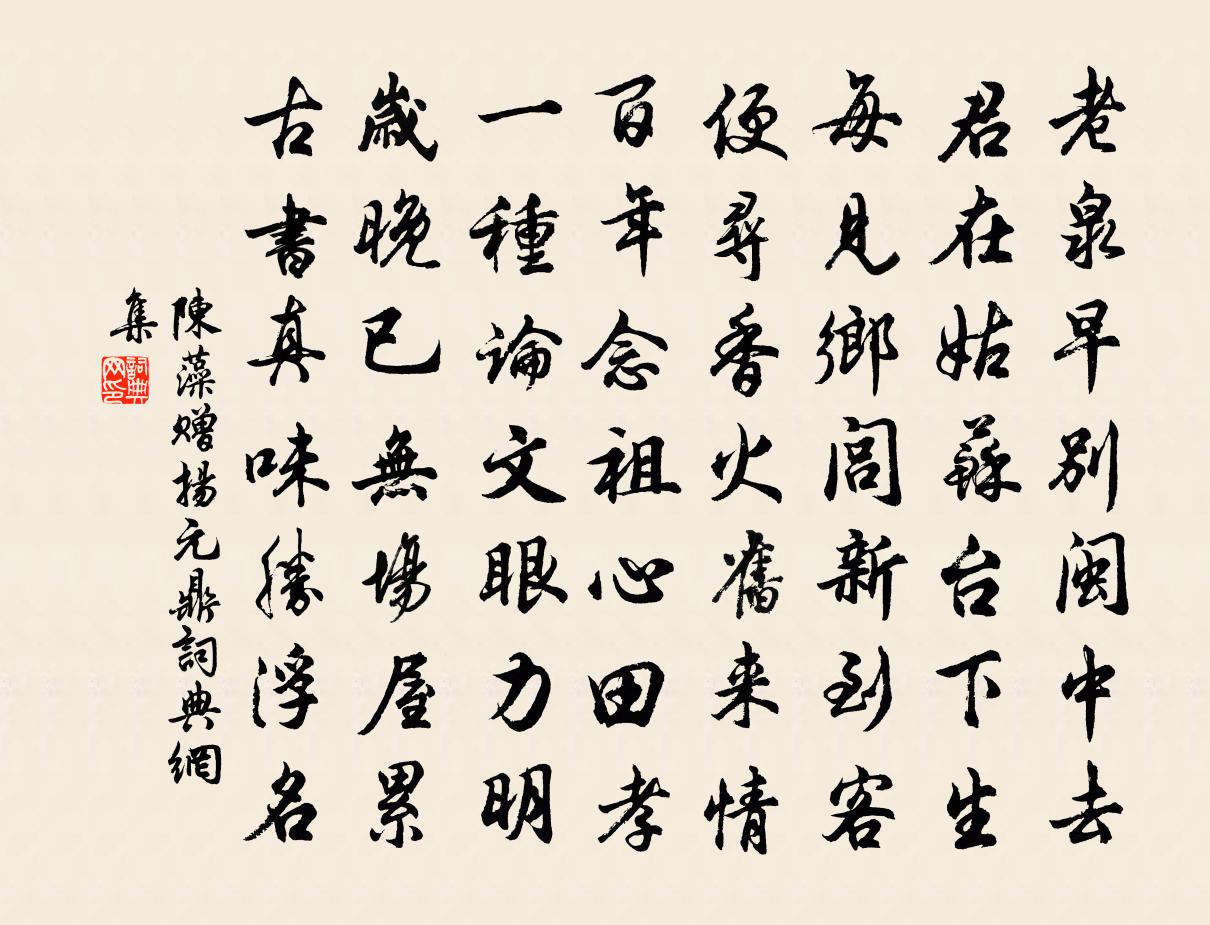 老泉早別閩中去
君在姑蘇台下生
每見鄉閭新到客
便尋香火舊来情
百年念祖心田孝
一種論文眼力明
歲晚已無場屋累
古書真味勝浮名
陳藻贈揚元鼎詞典網
集
詞典
网印